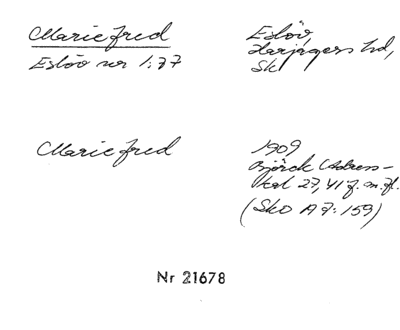 Mariefred
Eslöv,
Harjagers hd,
Sk
Eslöv ser 1:77
Mariefred
1909
Björck Adress-
kal 27, 41 f. m. fl.
(Sko A 7: 159)
Nr 21678